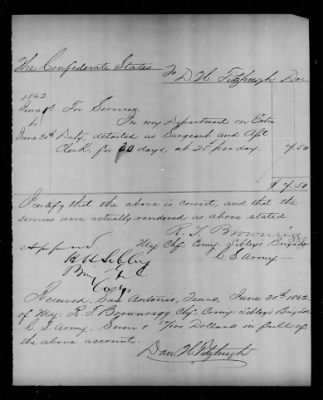 The Confederate States To D. H. Fitzhugh Dr
1862
June 1st For Services
to In my Department on Extra
June 30th Duty detailed as Sergeant and Apt
Clerk, for 30 days, at 25¢ per day. 7.50
$ 7.50
I certify that the above is correct, and that the
services were actually rendered as above stated
R. T. Brownrigg
Maj Chf Comy Sibleys Brigade
C S Army
Approved
H H Sibley
Brig Gen C
Comdg
Received, San Antonio, Texas, June 30th 1862.
of Maj. R. T. Brownrigg Chf Comy Sibleys Brigade
C. S. Army. Seven & 50/100 Dollars in full of
the above account.
Dan H Fitzhugh